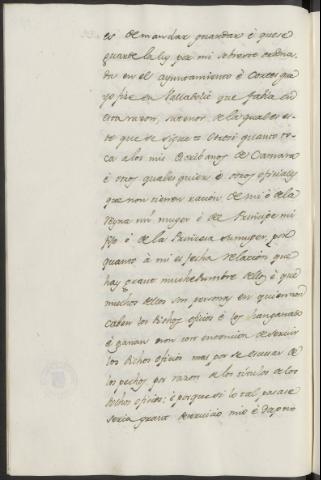 es demandar guardar é que se
guarde la ley por mi sobre esto ordena
da en el ayuntamiento é Cortes que
yo fize en Valladolid que fabla en
esta razon, su tenor de la qual es es-
te que se sigue = Otrosi quanto to-
ca a los mis Escrivanos de Camara
é otros quales quier é otros oficiales
que non tienen racion de mi é de la
Reyna mi muger é de Principe mi
fijo é de la Princesa su muger, por
quanto á mi es fecha relacion que
hay grant muchedumbre dellos, é que
muchos dellos son personas en quien non
caben los dichos oficios é los han ganado
é ganan non con entencion de servir
los dichos oficios mas por se escusar de
los pechos por razon de los titulos de los
dichos oficios: é porque si lo tal pasase
seria grant deservicio mio é dapno